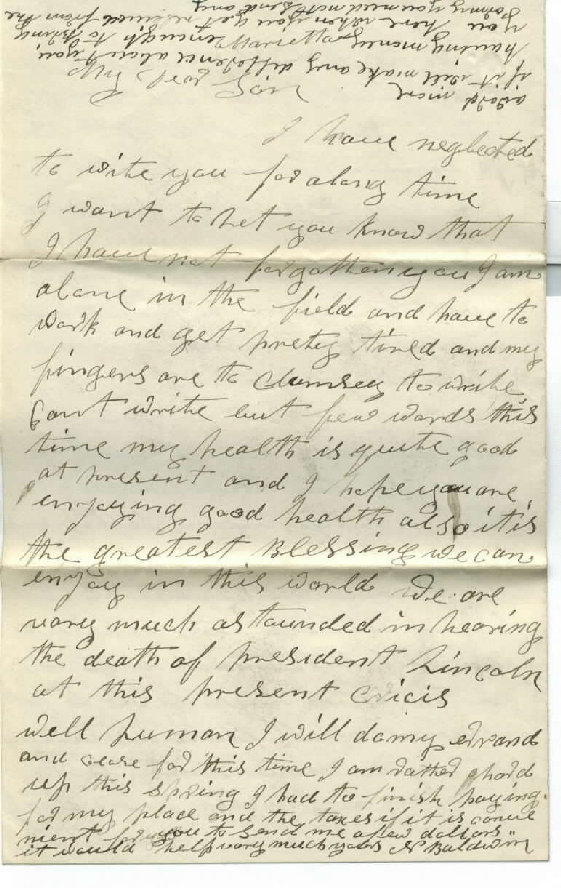 Marietta
My Dear Son
I have neglected
to wite you for along time
I want to let you know that
I have not forgotten you I am
alone in the field and have to
work and get prety tired and my
fingers are to clumsey to write
cant write but few words this
time my health is quite good
at present and I hope you are
enjoying good health also it is
the greatest Blessing we can
enjoy in this world we are
vary much astounded in hearing
the death of president Lincoln
at this present cricis
well Luman I will do my errand
and cease for this time I am rather hard
up this spring I had to finish paying
for my place and the taxes if it is conve
nient for you to send me a few dollars
it would help vary much yours N Baldwin
a word more
if it will make any difference about you
having money enough to bring
you here when you get released from the
Army you need not send any